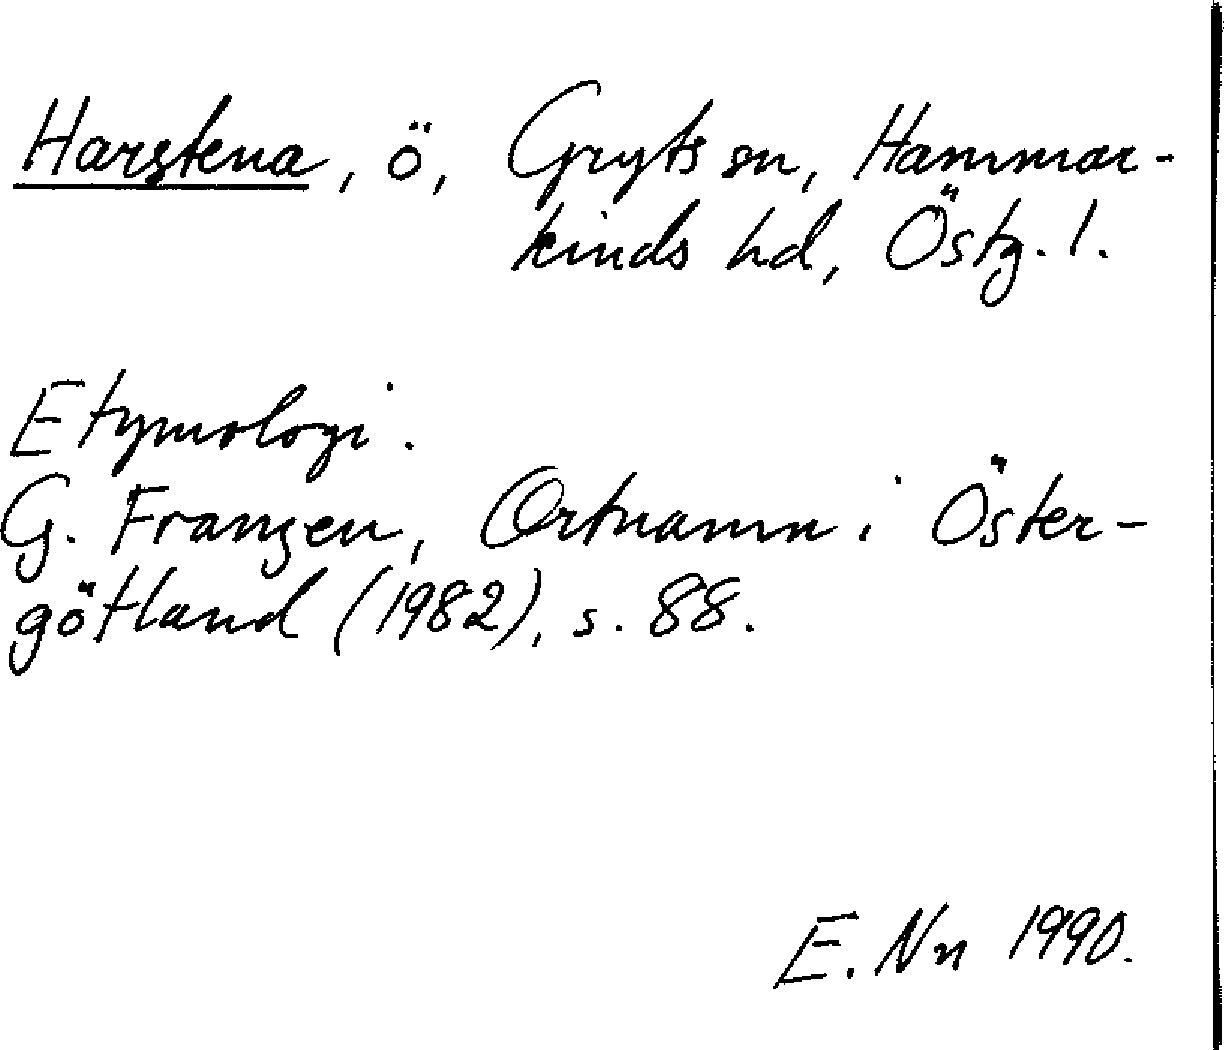 Harstena, ö, Gryts sn, Hammar-
kinds hd, Östg. l.
Etymologi.
G. Franzen, Ortnamn i Öster-
götland (1982), s. 88.
E. Nn 1990.